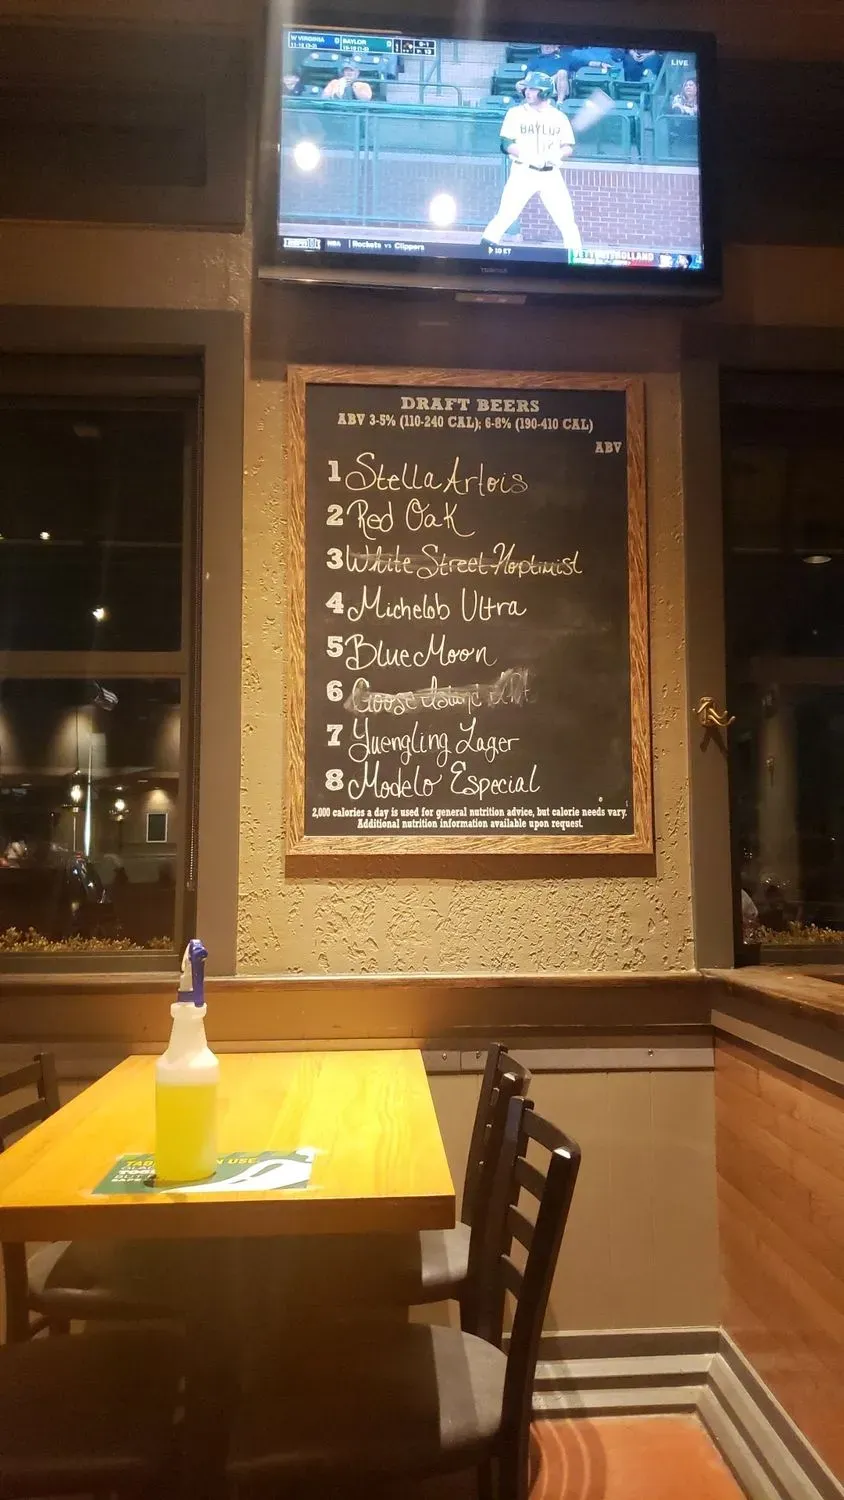 W VIRGINIA 0 BAYLOR 0
LIVE
BAYLOR
12
NBA Rockets vs Clippers
10 ET
DRAFT BEERS
ABV 3-5% (110-240 CAL); 6-8% (190-410 CAL)
ABV
1 Stella Artois
2 Red Oak
3 White Street Hoptimist
4 Michelob Ultra
5 Blue Moon
6 Goose
7 Yuengling Lager
8 Modelo Especial
2,000 calories a day is used for general nutrition advice, but calorie needs vary.
Additional nutrition information available upon request.
USE